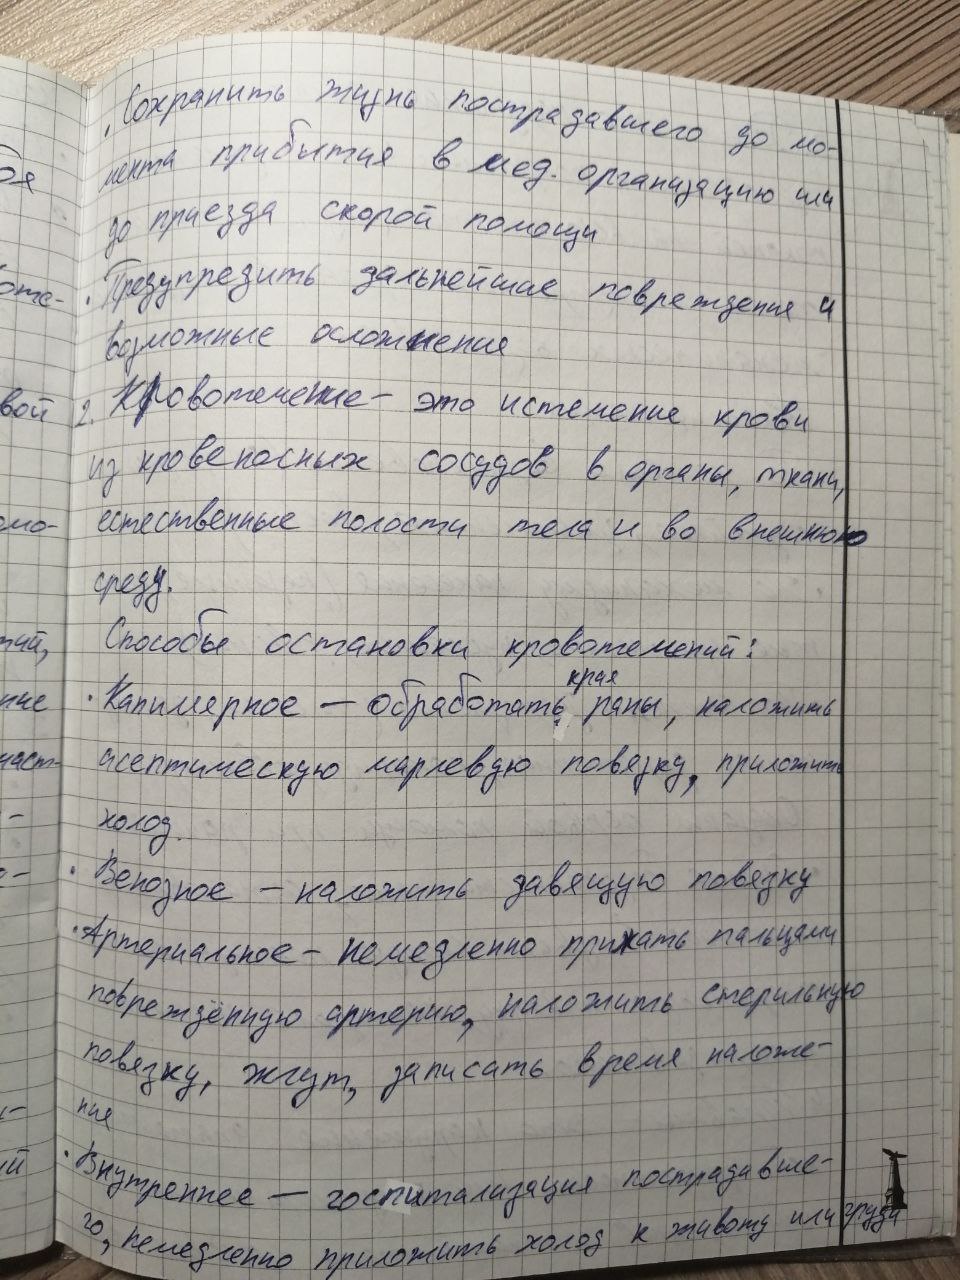 . Сохранить жизнь пострадавшего до мо-
мента прибытия в мед. организацию или
до приезда скорой помощи
. Предупредить дальнейшие повреждения и
возможные осложнения
2. Кровотечение - это истечение крови
из кровеносных сосудов в органы, ткани,
естественные полости тела и во внешнюю
среду.
Способы остановки кровотечений:
. Капилярное - обработать края раны, наложить
асептическую марлевую повязку, приложить
холод.
. Венозное - наложить давящую повязку
. Артериальное - немедленно прижать пальцами
повреждённую артерию, наложить стерильную
повязку, жгут, записать время наложе-
ния
. Внутреннее - госпитализация пострадавше-
го, немедленно приложить холод к животу или груди